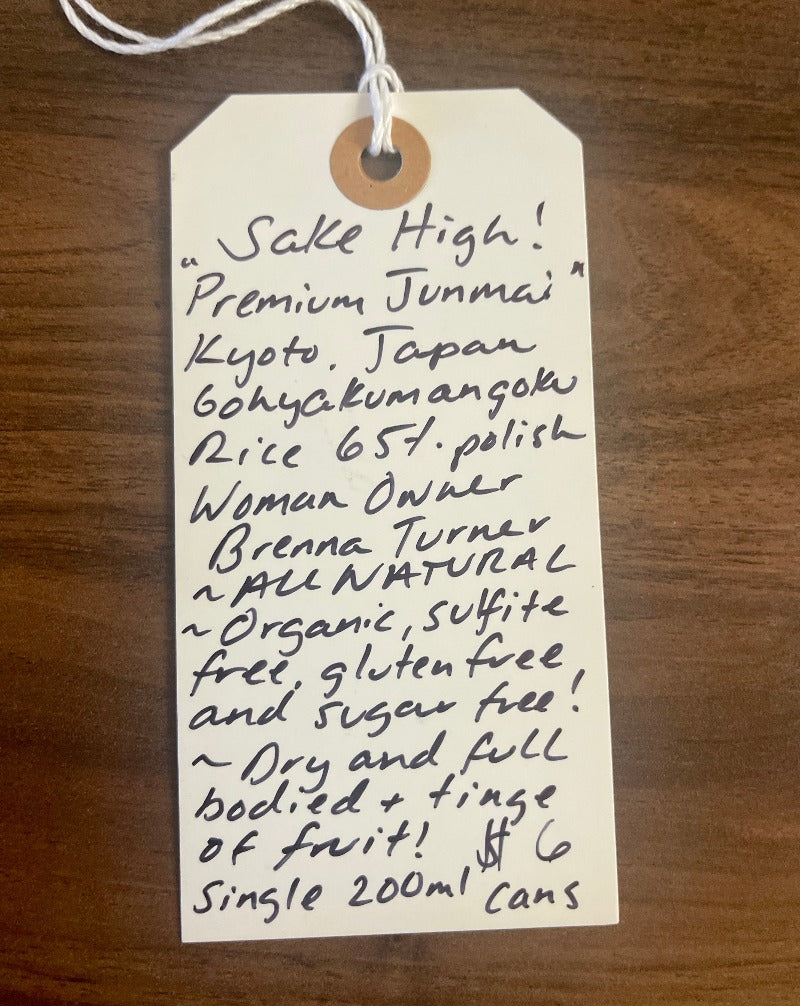 "Sake High!
Premium Junmai"
Kyoto, Japan
Gohyakumangoku
Rice 65%. polish
Woman Owner
Brenna Turner
~ALL NATURAL
~Organic, sulfite
free, gluten free,
and sugar free!
~Dry and full
bodied + tinge
of fruit! $6
Single 200ml cans